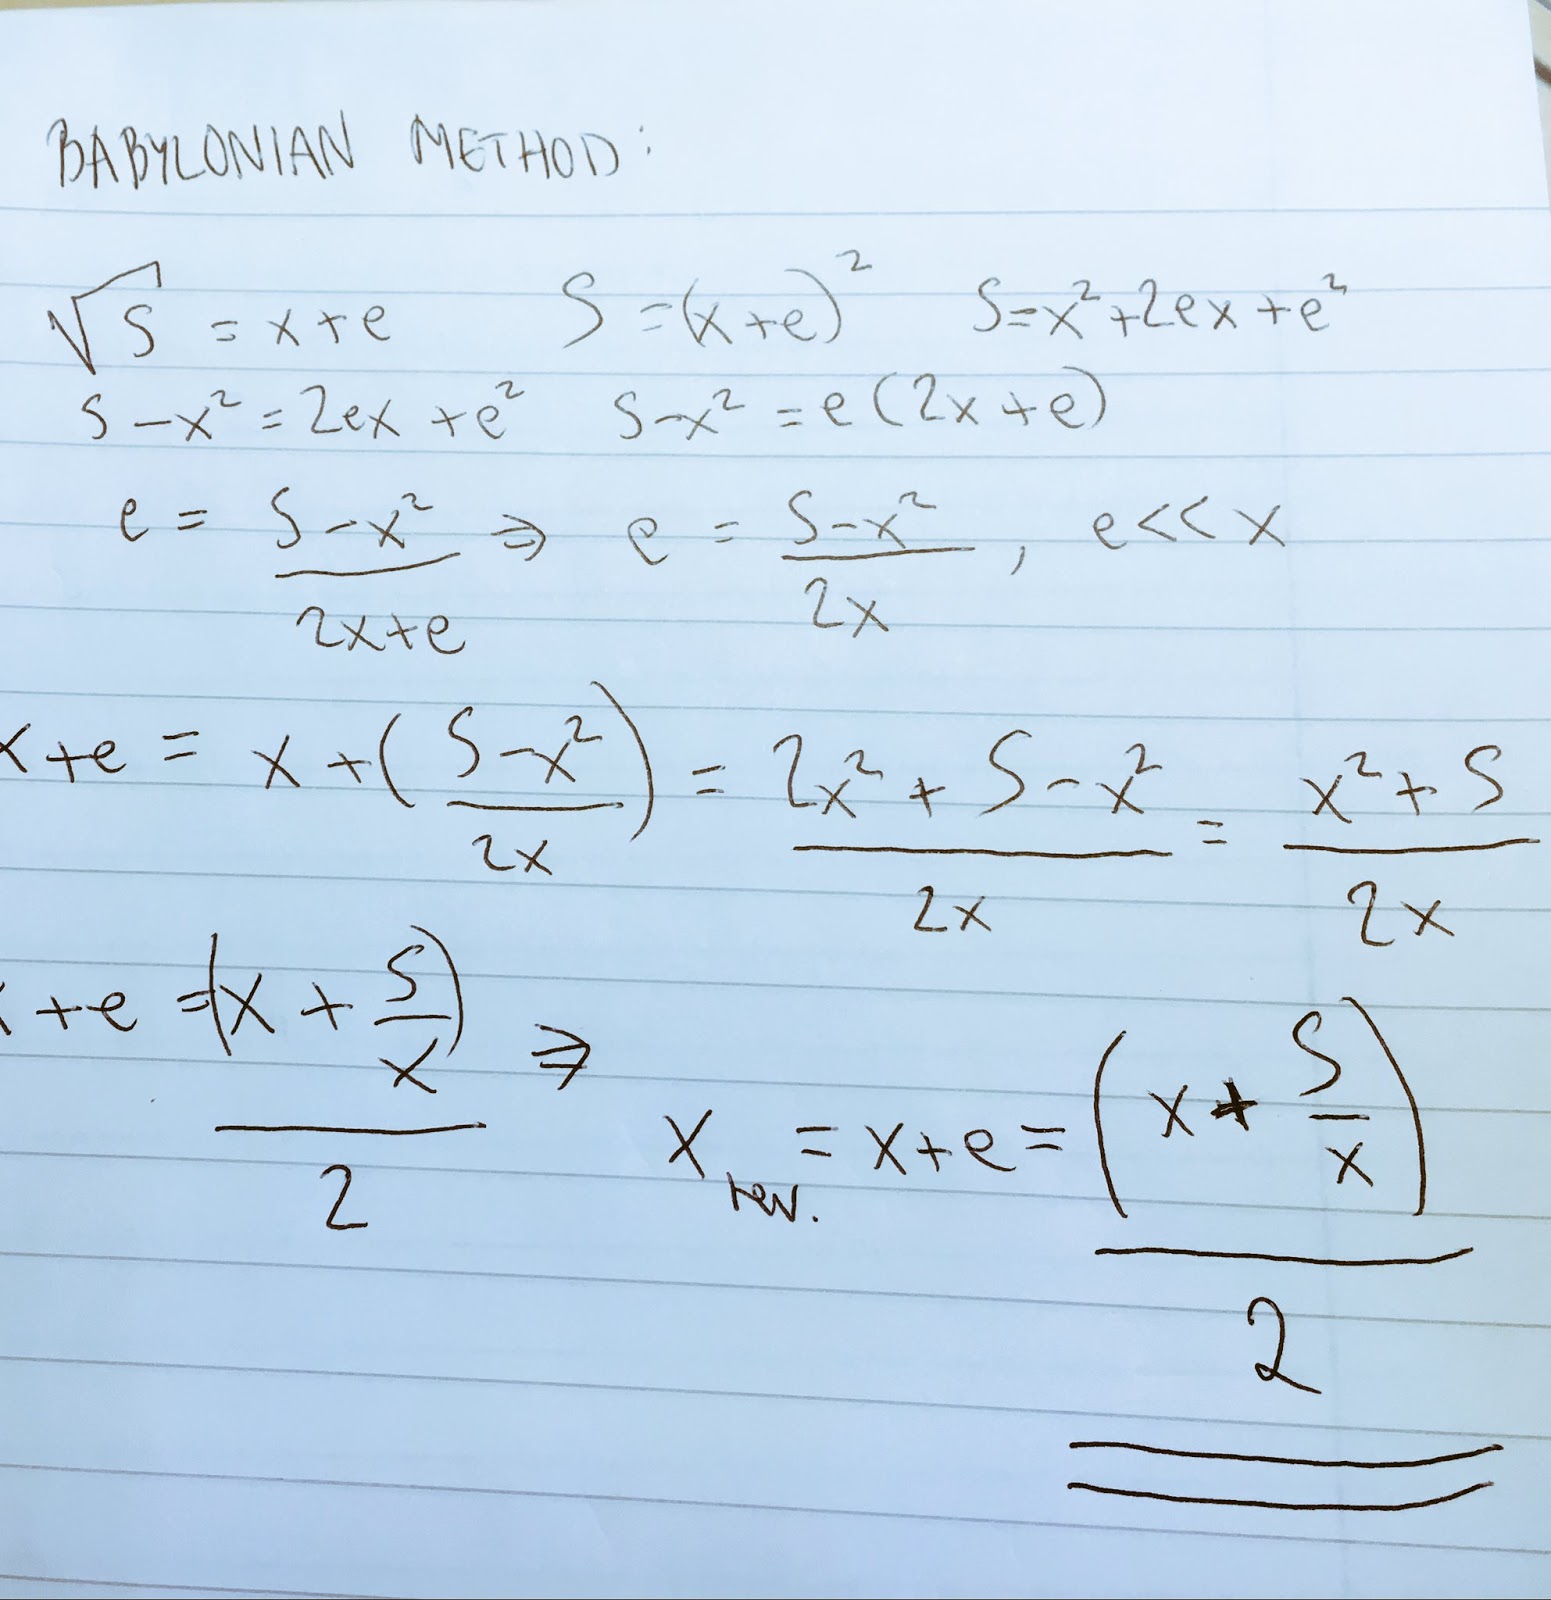 BABYLONIAN METHOD:
√S = x+e S = (x+e)² S=x²+2ex+e²
S-x² = 2ex+e² S-x² = e(2x+e)
e = (S-x²)/(2x+e) ⇒ e = (S-x²)/(2x), e<<x
x+e = x+((S-x²)/(2x)) = (2x²+S-x²)/(2x) = (x²+S)/(2x)
x+e = (x+S/x)/2 ⇒
x rev. = x+e = (x+S/x)/2